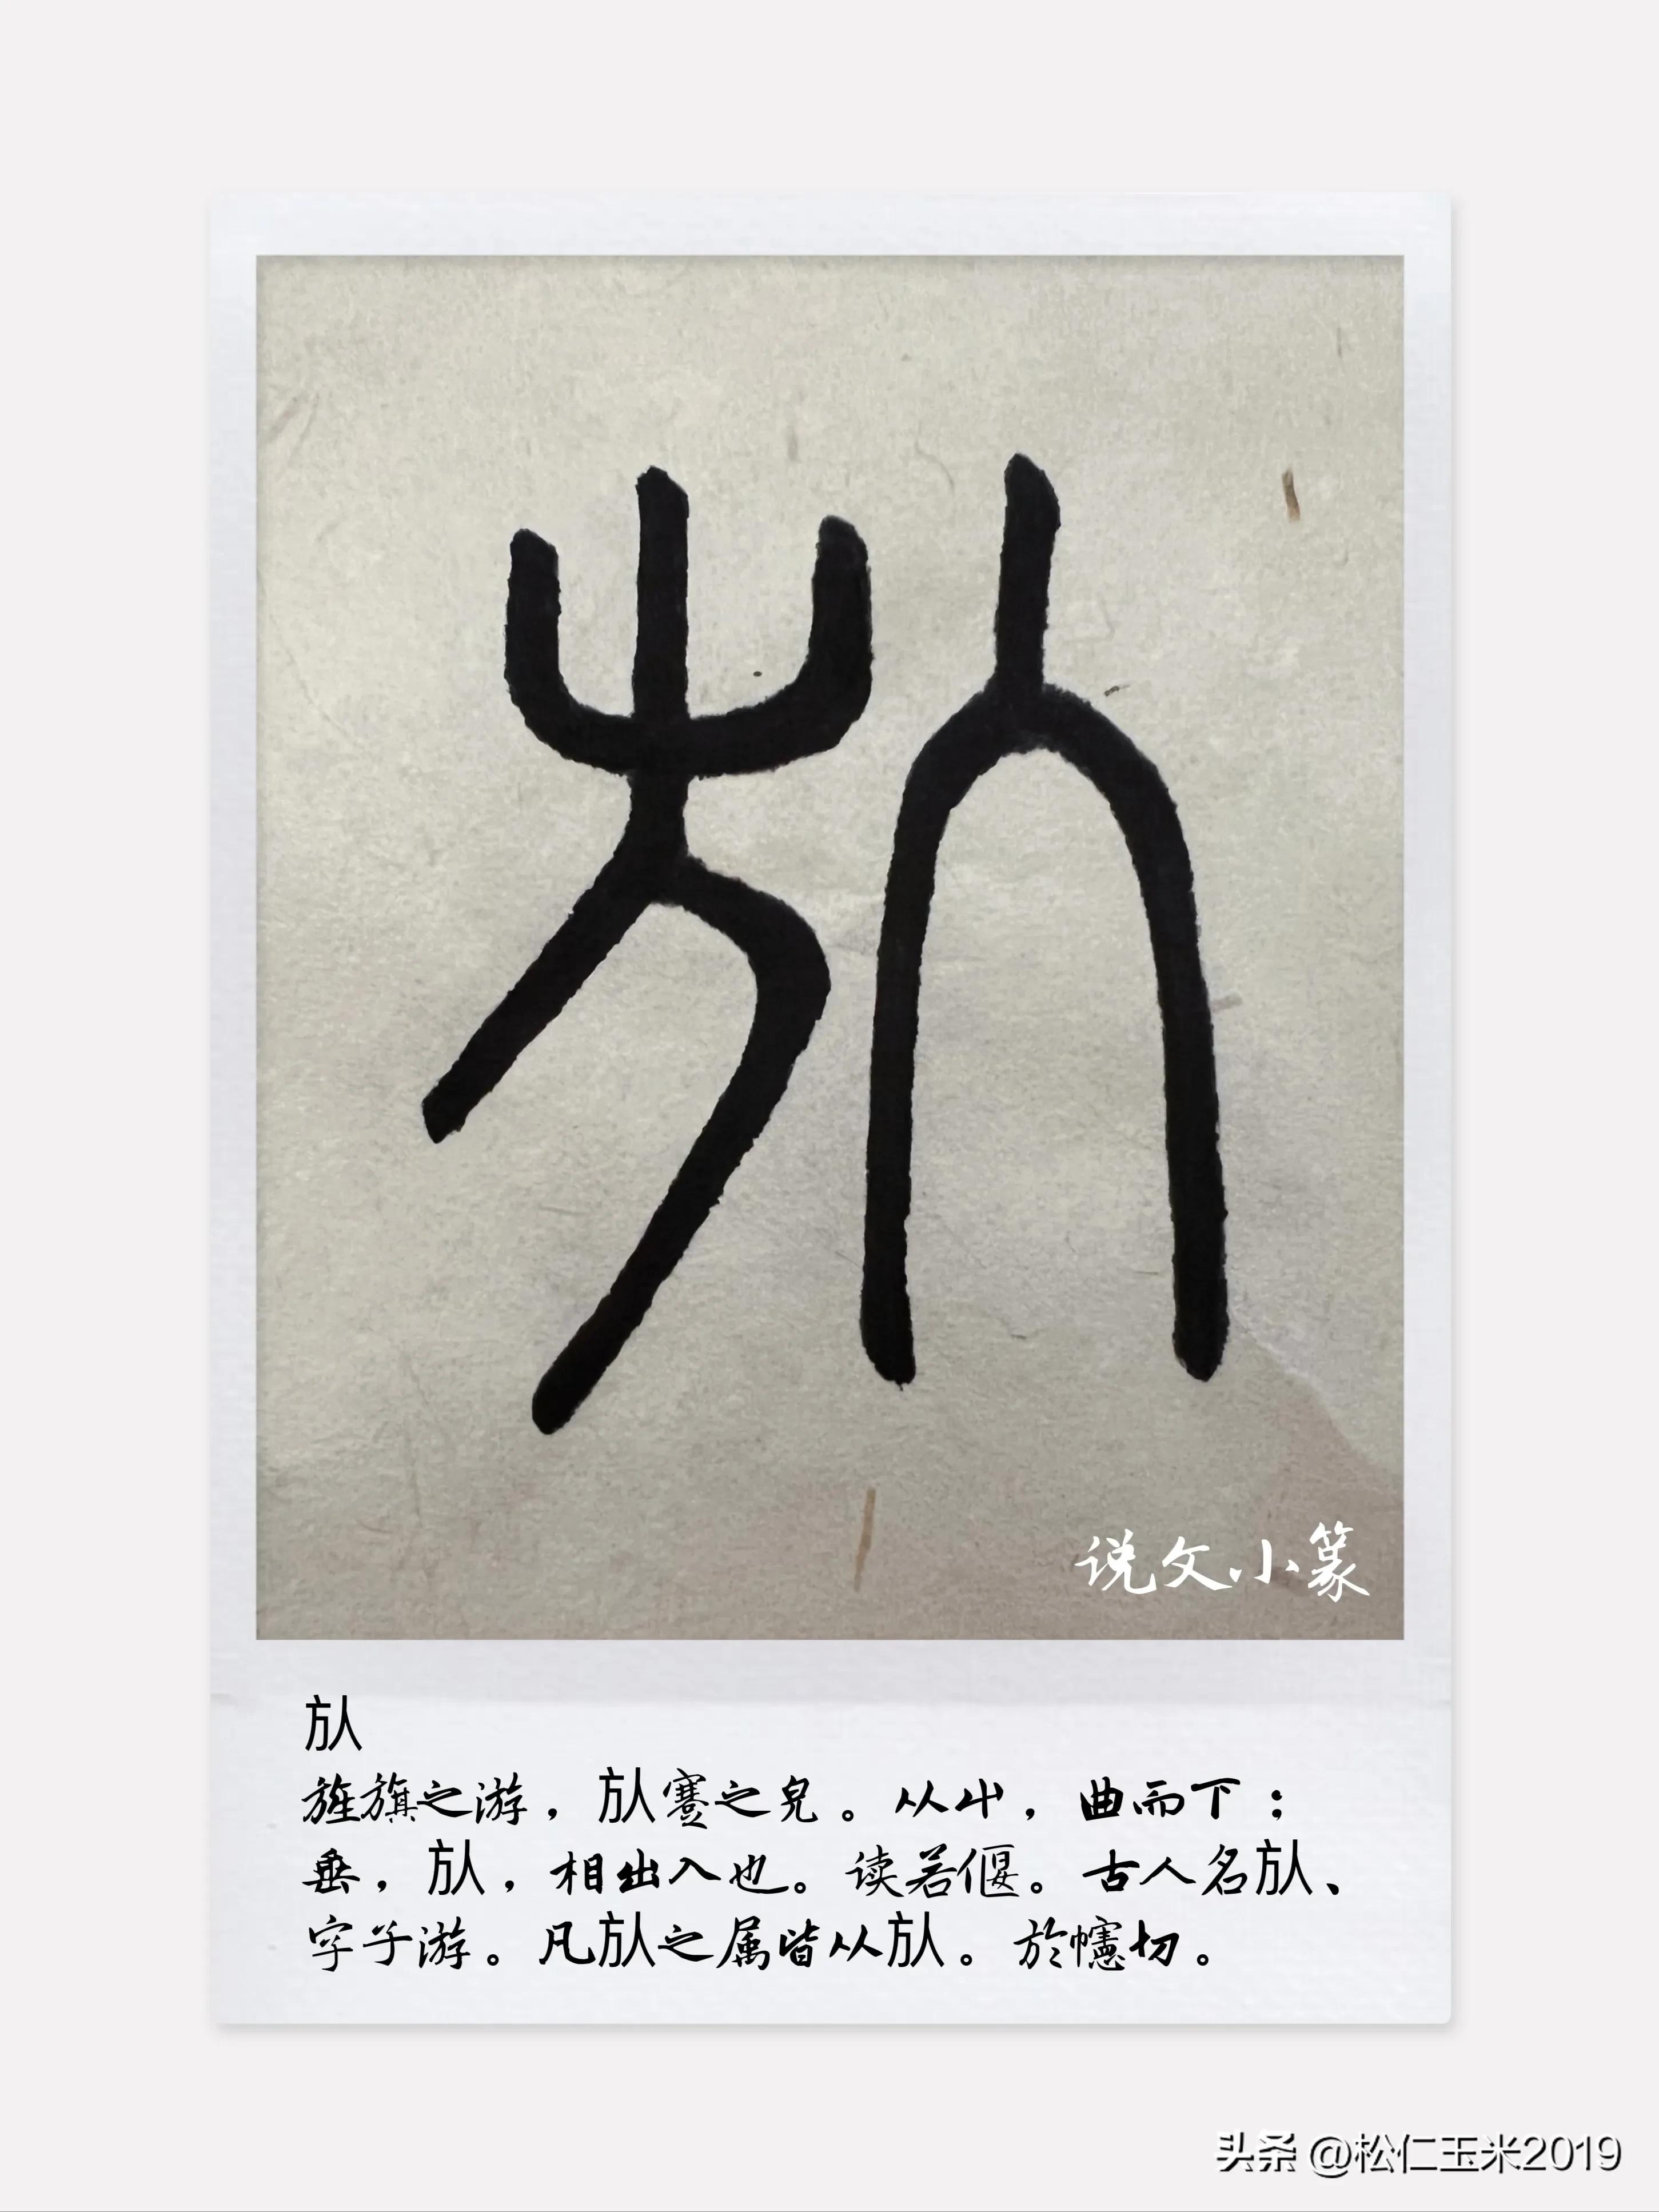 㫃
说文小篆
㫃
旌旗之游，㫃蹇之皃。从屮，曲而下；
垂，㫃，相出入也。读若偃。古人名㫃、
字子游。凡㫃之属皆从㫃。於幰切。
头条 @松仁玉米2019